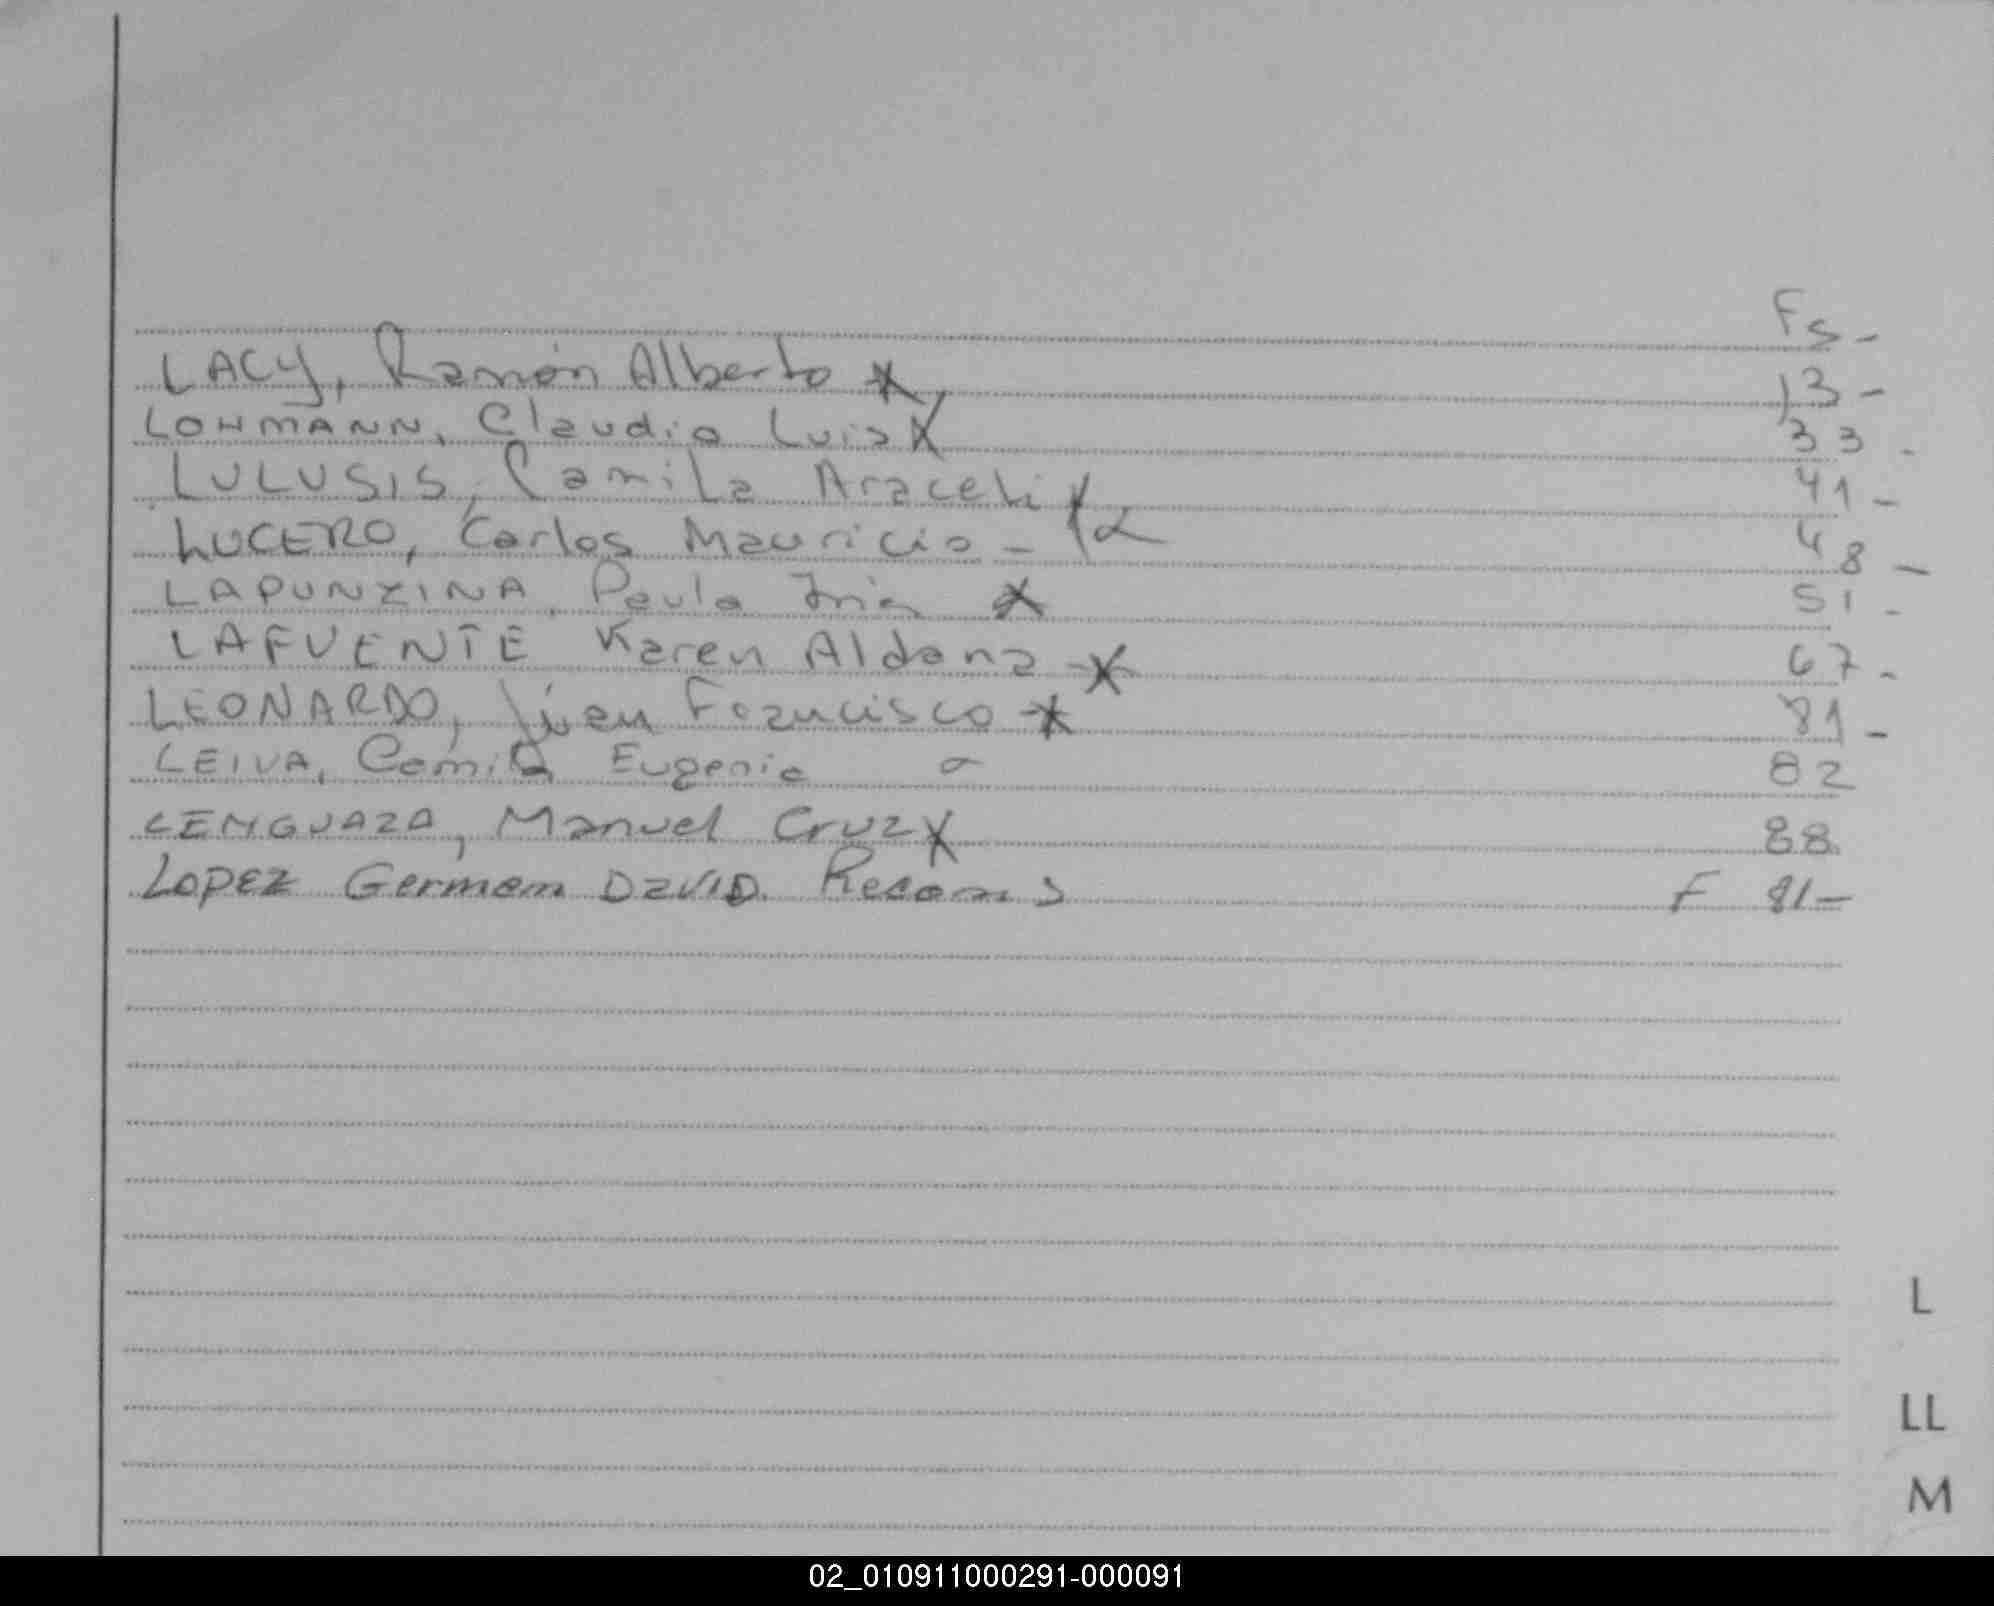 Fs -
LACY, Ramón Alberto 13 -
LOHMANN, Claudio Luis X 33 -
LULUSIS, Camila Araceli 41 -
LUCERO, Carlos Mauricio - 48 -
LAPUNZINA, Paula 51 -
LAFUENTE Karen Aldana X 67 -
LEONARDO, Juan Francisco 81 -
LEIVA, Camila Eugenia 82
LENGUAZA, Manuel Cruz X 88
LOPEZ German DAVID F 81 -
L
LL
M
02_010911000291-000091